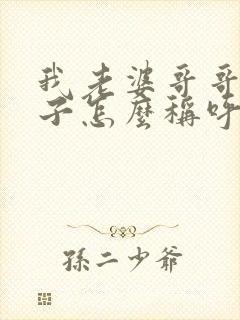 我老婆哥哥
子怎麼稱呼
孫二少爺